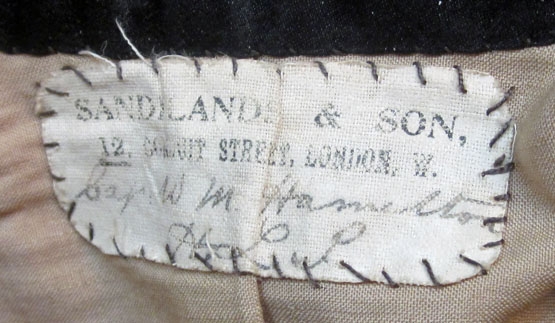 SANDILANDS & SON,
12, CONDUIT STREET, LONDON, W.
Cap. W M. Hamilton
H. L. I.